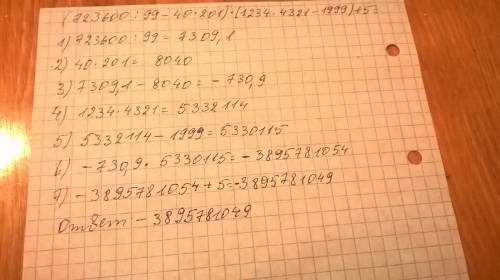 (723600:99-40·201)·(1234·4321-1999)+5=
1) 723600:99=7309,1
2) 40·201= 8040
3) 7309,1-8040=-730,9
4) 1234·4321=5332114
5) 5332114-1999=5330115
6) -730,9·5330115=-3895781054
7) -3895781054+5=-3895781049
Ответ:-3895781049